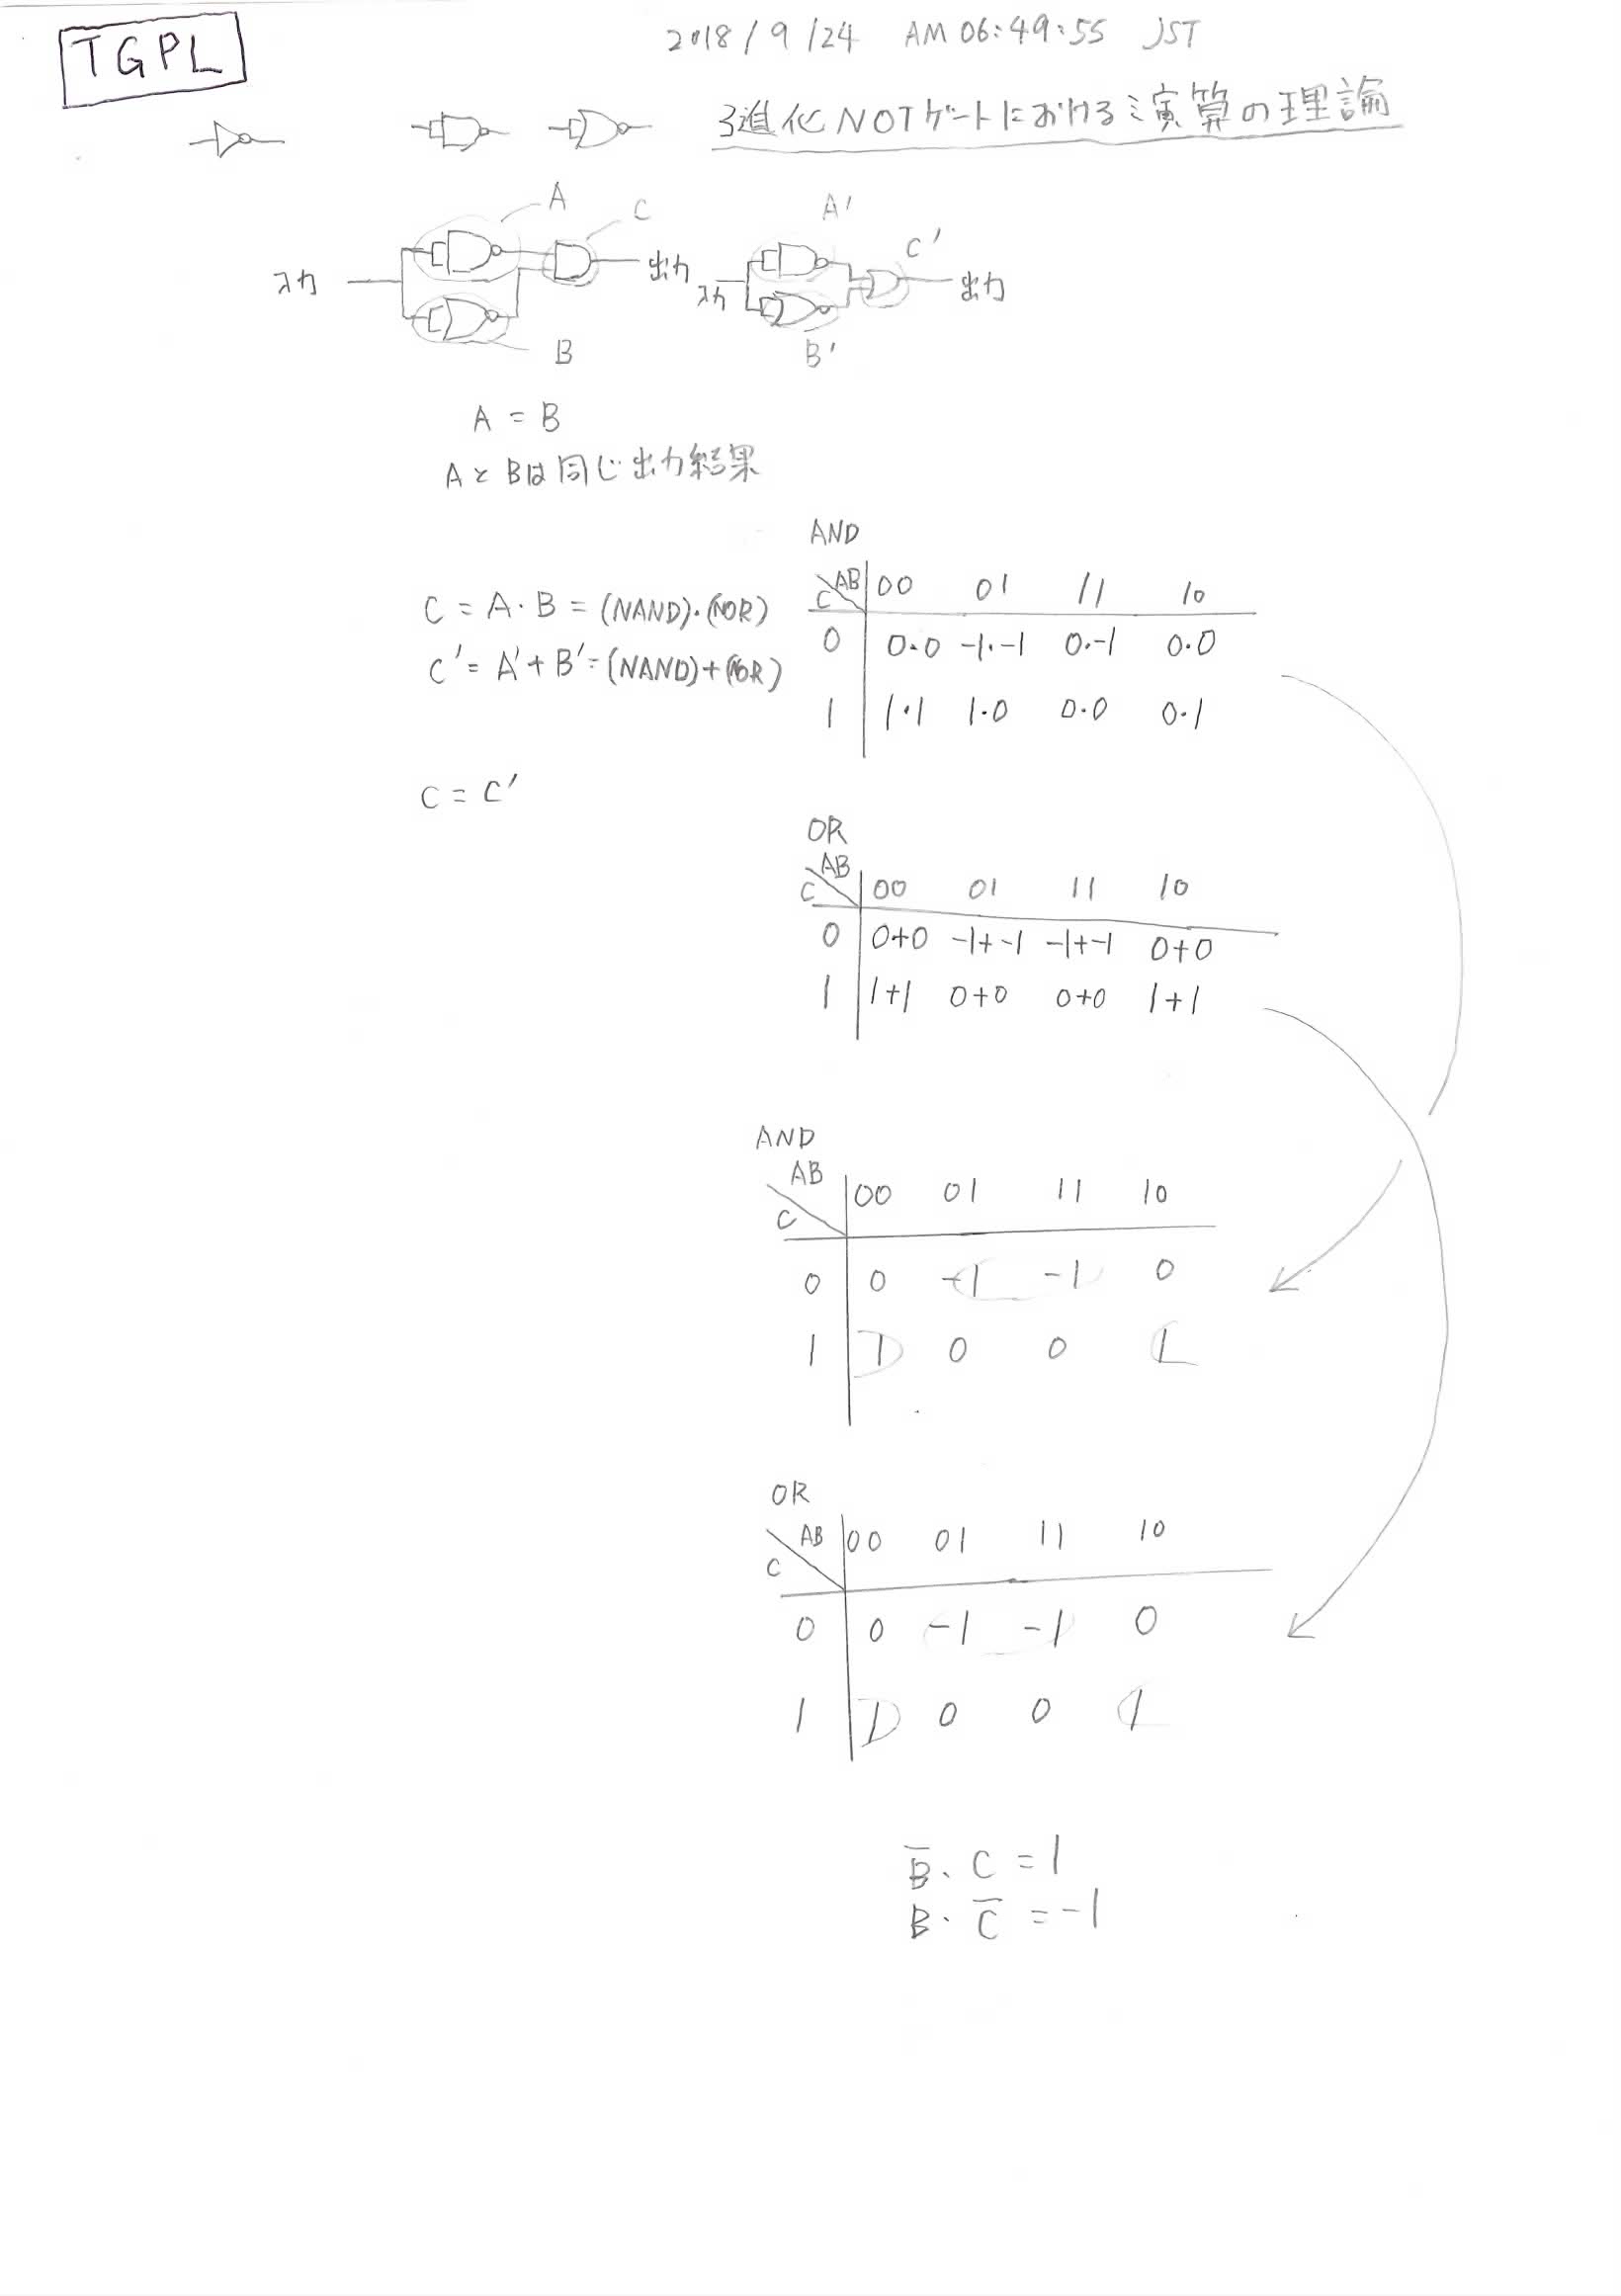 TGPL
2018/9/24 AM 06:49:55 JST
3進化NOTゲートにおける演算の理論
A C
入力 出力
B
A' C'
入力 出力
B'
A = B
AとBは同じ出力結果
C = A・B = (NAND)・(NOR)
C' = A'+B' = (NAND)+(NOR)
C = C'
AND
C AB 00 01 11 10
0 0・0 -1・-1 0・-1 0・0
1 1・1 1・0 0・0 0・1
OR
C AB 00 01 11 10
0 0+0 -1+-1 -1+-1 0+0
1 1+1 0+0 0+0 1+1
AND
C AB 00 01 11 10
0 0 -1 -1 0
1 1 0 0 1
OR
C AB 00 01 11 10
0 0 -1 -1 0
1 1 0 0 1
B̅・C = 1
B・C̅ = -1